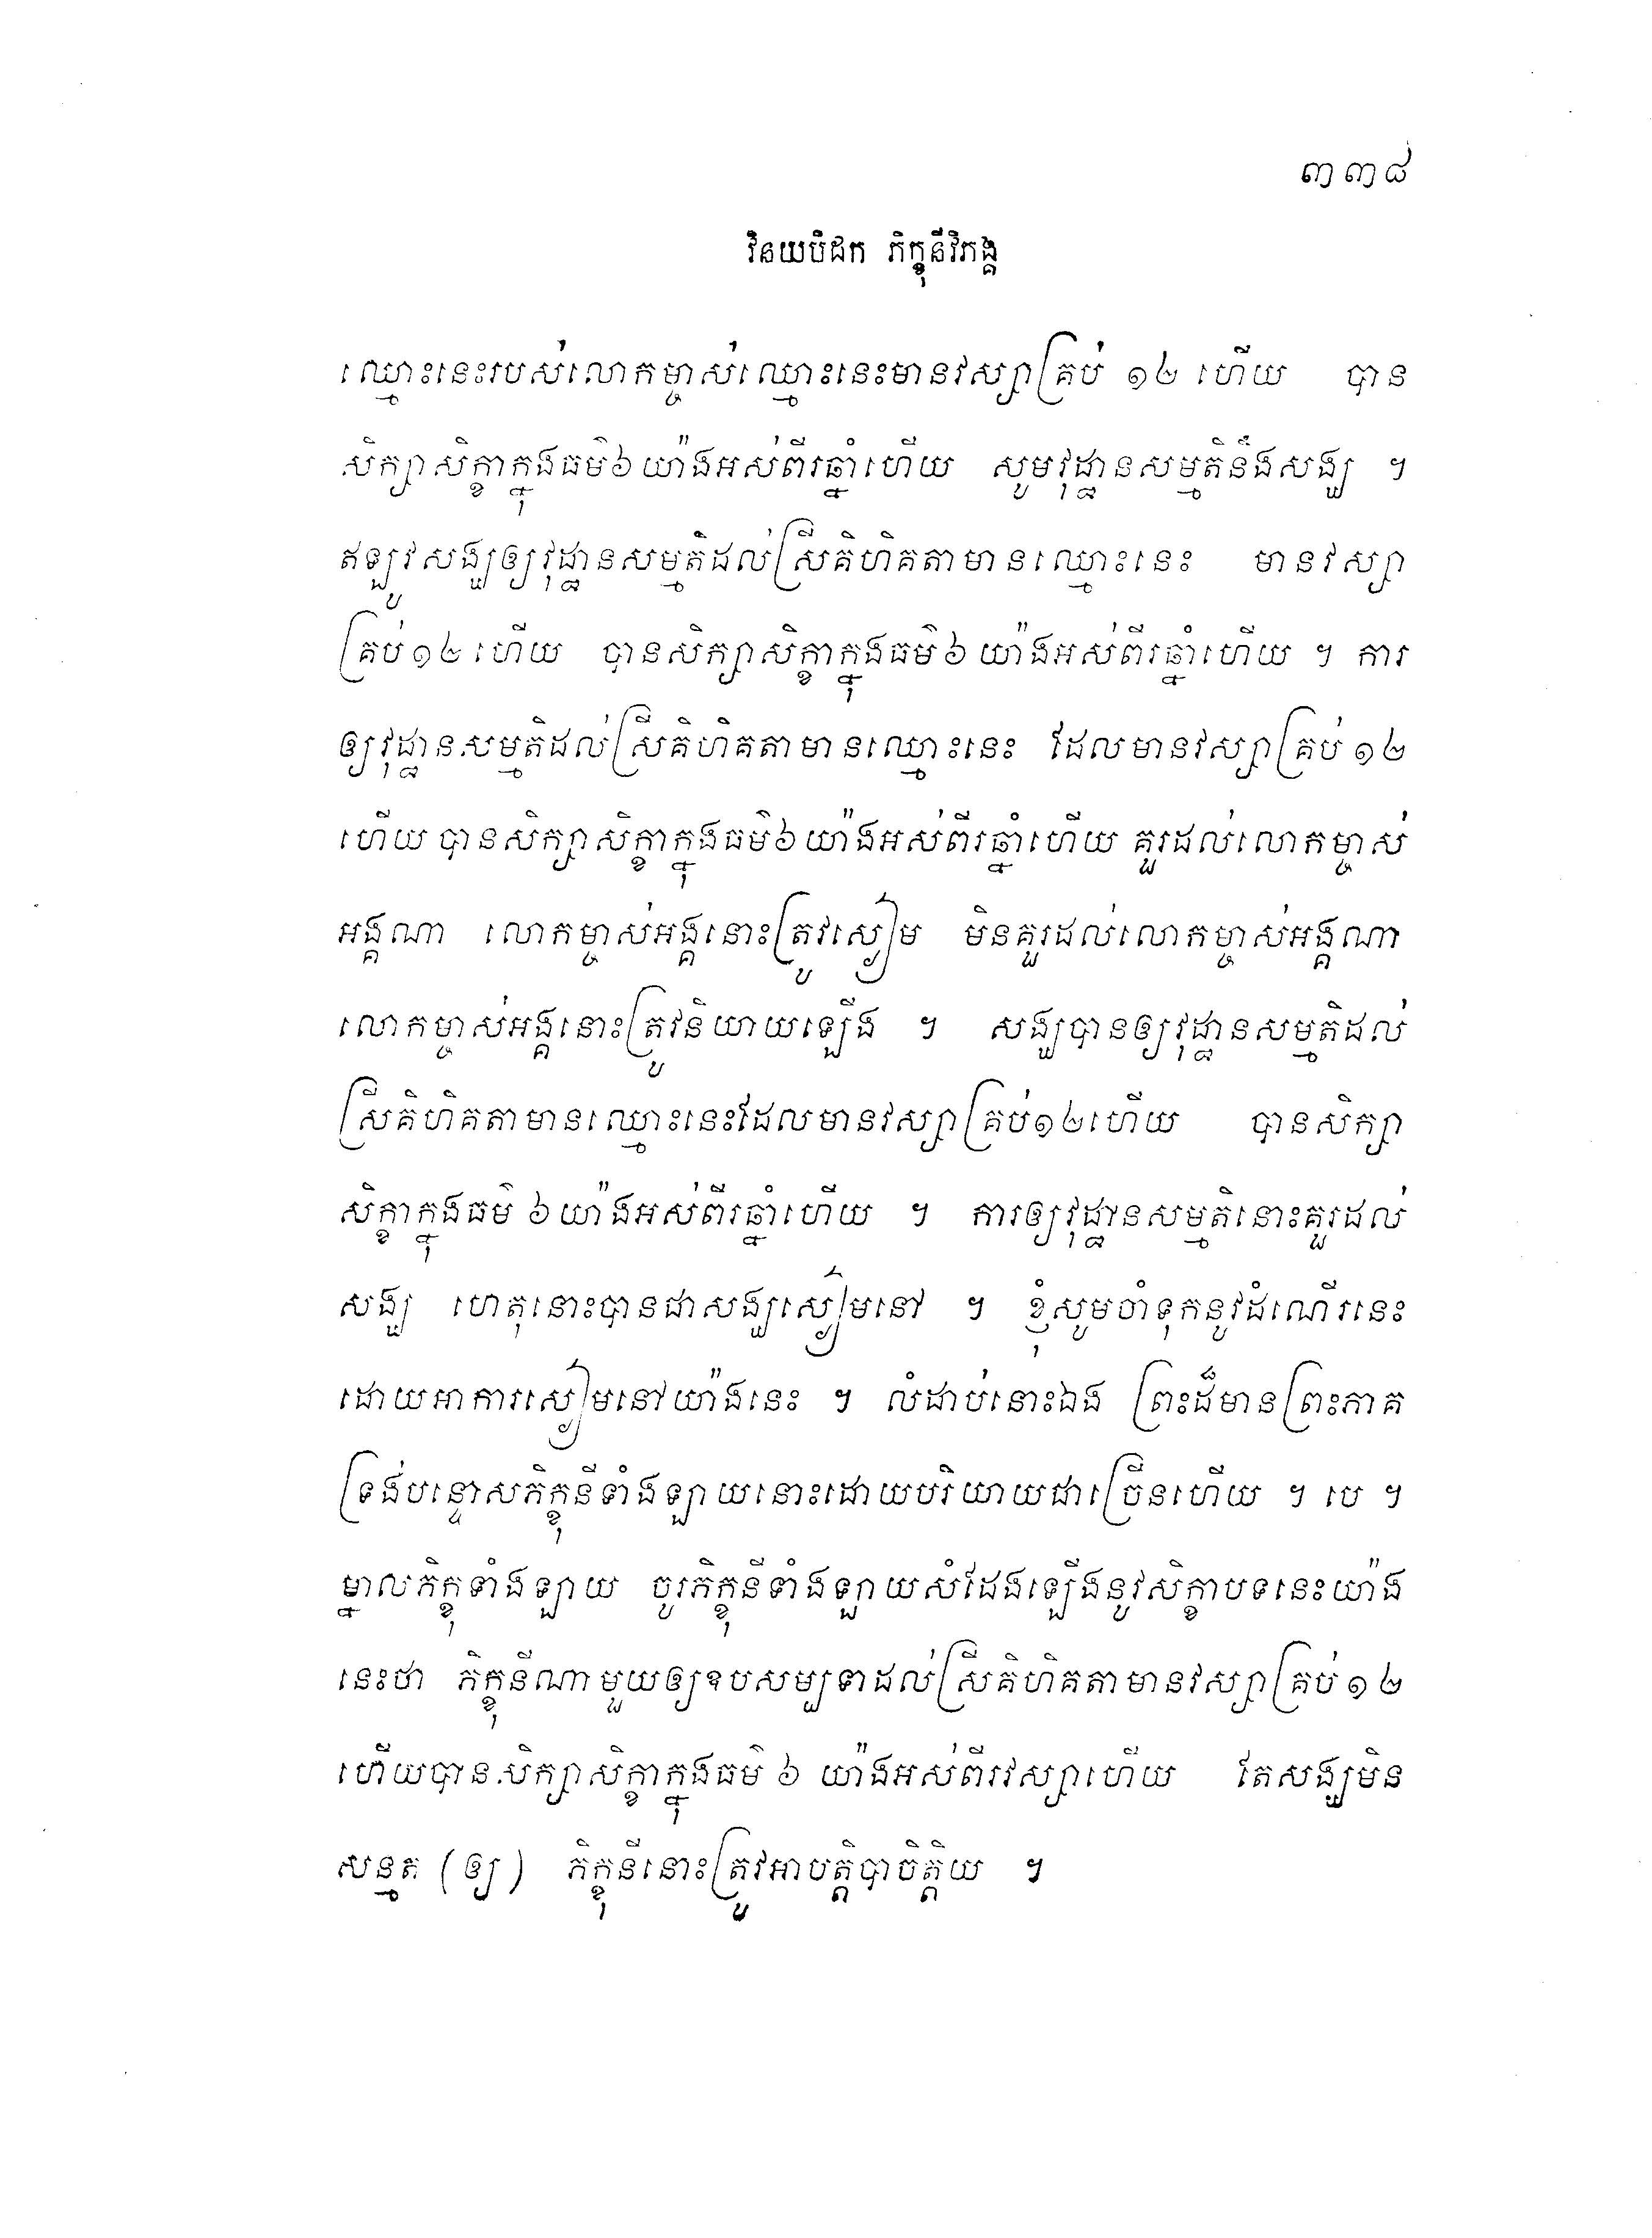 ៣៣៨
វិនយបិដក ភិក្ខុនីវិភង្គ
ឈ្មោះនេះរបស់លោកម្ចាស់ឈ្មោះនេះមានវស្សាគ្រប់ ១២ ហើយ បាន
សិក្សាសិក្ខាក្នុងធម៌៦យ៉ាងអស់ពីរឆ្នាំហើយ សូមវុដ្ឋានសម្មតិនឹងសង្ឃ ។
ឥឡូវសង្ឃឲ្យវុដ្ឋានសម្មតិដល់ស្រីគិហិគតាមានឈ្មោះនេះ មានវស្សា
គ្រប់១២ហើយ បានសិក្សាសិក្ខាក្នុងធម៌៦យ៉ាងអស់ពីរឆ្នាំហើយ ។ ការ
ឲ្យវុដ្ឋានសម្មតិដល់ស្រីគិហិគតាមានឈ្មោះនេះ ដែលមានវស្សាគ្រប់១២
ហើយ បានសិក្សាសិក្ខាក្នុងធម៌៦យ៉ាងអស់ពីរឆ្នាំហើយ គួរដល់លោកម្ចាស់
អង្គណា លោកម្ចាស់អង្គនោះត្រូវស្ងៀម មិនគួរដល់លោកម្ចាស់អង្គណា
លោកម្ចាស់អង្គនោះត្រូវនិយាយឡើង ។ សង្ឃបានឲ្យវុដ្ឋានសម្មតិដល់
ស្រីគិហិគតាមានឈ្មោះនេះដែលមានវស្សាគ្រប់១២ហើយ បានសិក្សា
សិក្ខាក្នុងធម៌ ៦យ៉ាងអស់ពីរឆ្នាំហើយ ។ ការឲ្យវុដ្ឋានសម្មតិនោះគួរដល់
សង្ឃ ហេតុនោះបានជាសង្ឃស្ងៀមនៅ ។ ខ្ញុំសូមចាំទុកនូវដំណើរនេះ
ដោយអាការស្ងៀមនៅយ៉ាងនេះ ។ លំដាប់នោះឯង ព្រះដ៏មានព្រះភាគ
ទ្រង់បន្ទោសភិក្ខុនីទាំងឡាយនោះដោយបរិយាយជាច្រើនហើយ ។ បេ ។
ម្នាលភិក្ខុទាំងឡាយ ចូរភិក្ខុនីទាំងឡាយសំដែងឡើងនូវសិក្ខាបទនេះយ៉ាង
នេះថា ភិក្ខុនីណាមួយឲ្យឧបសម្បទាដល់ស្រីគិហិគតាមានវស្សាគ្រប់១២
ហើយបានសិក្សាសិក្ខាក្នុងធម៌ ៦ យ៉ាងអស់ពីរវស្សាហើយ តែសង្ឃមិន
សន្មត (ឲ្យ) ភិក្ខុនីនោះត្រូវអាបត្តិបាចិត្តិយ ។